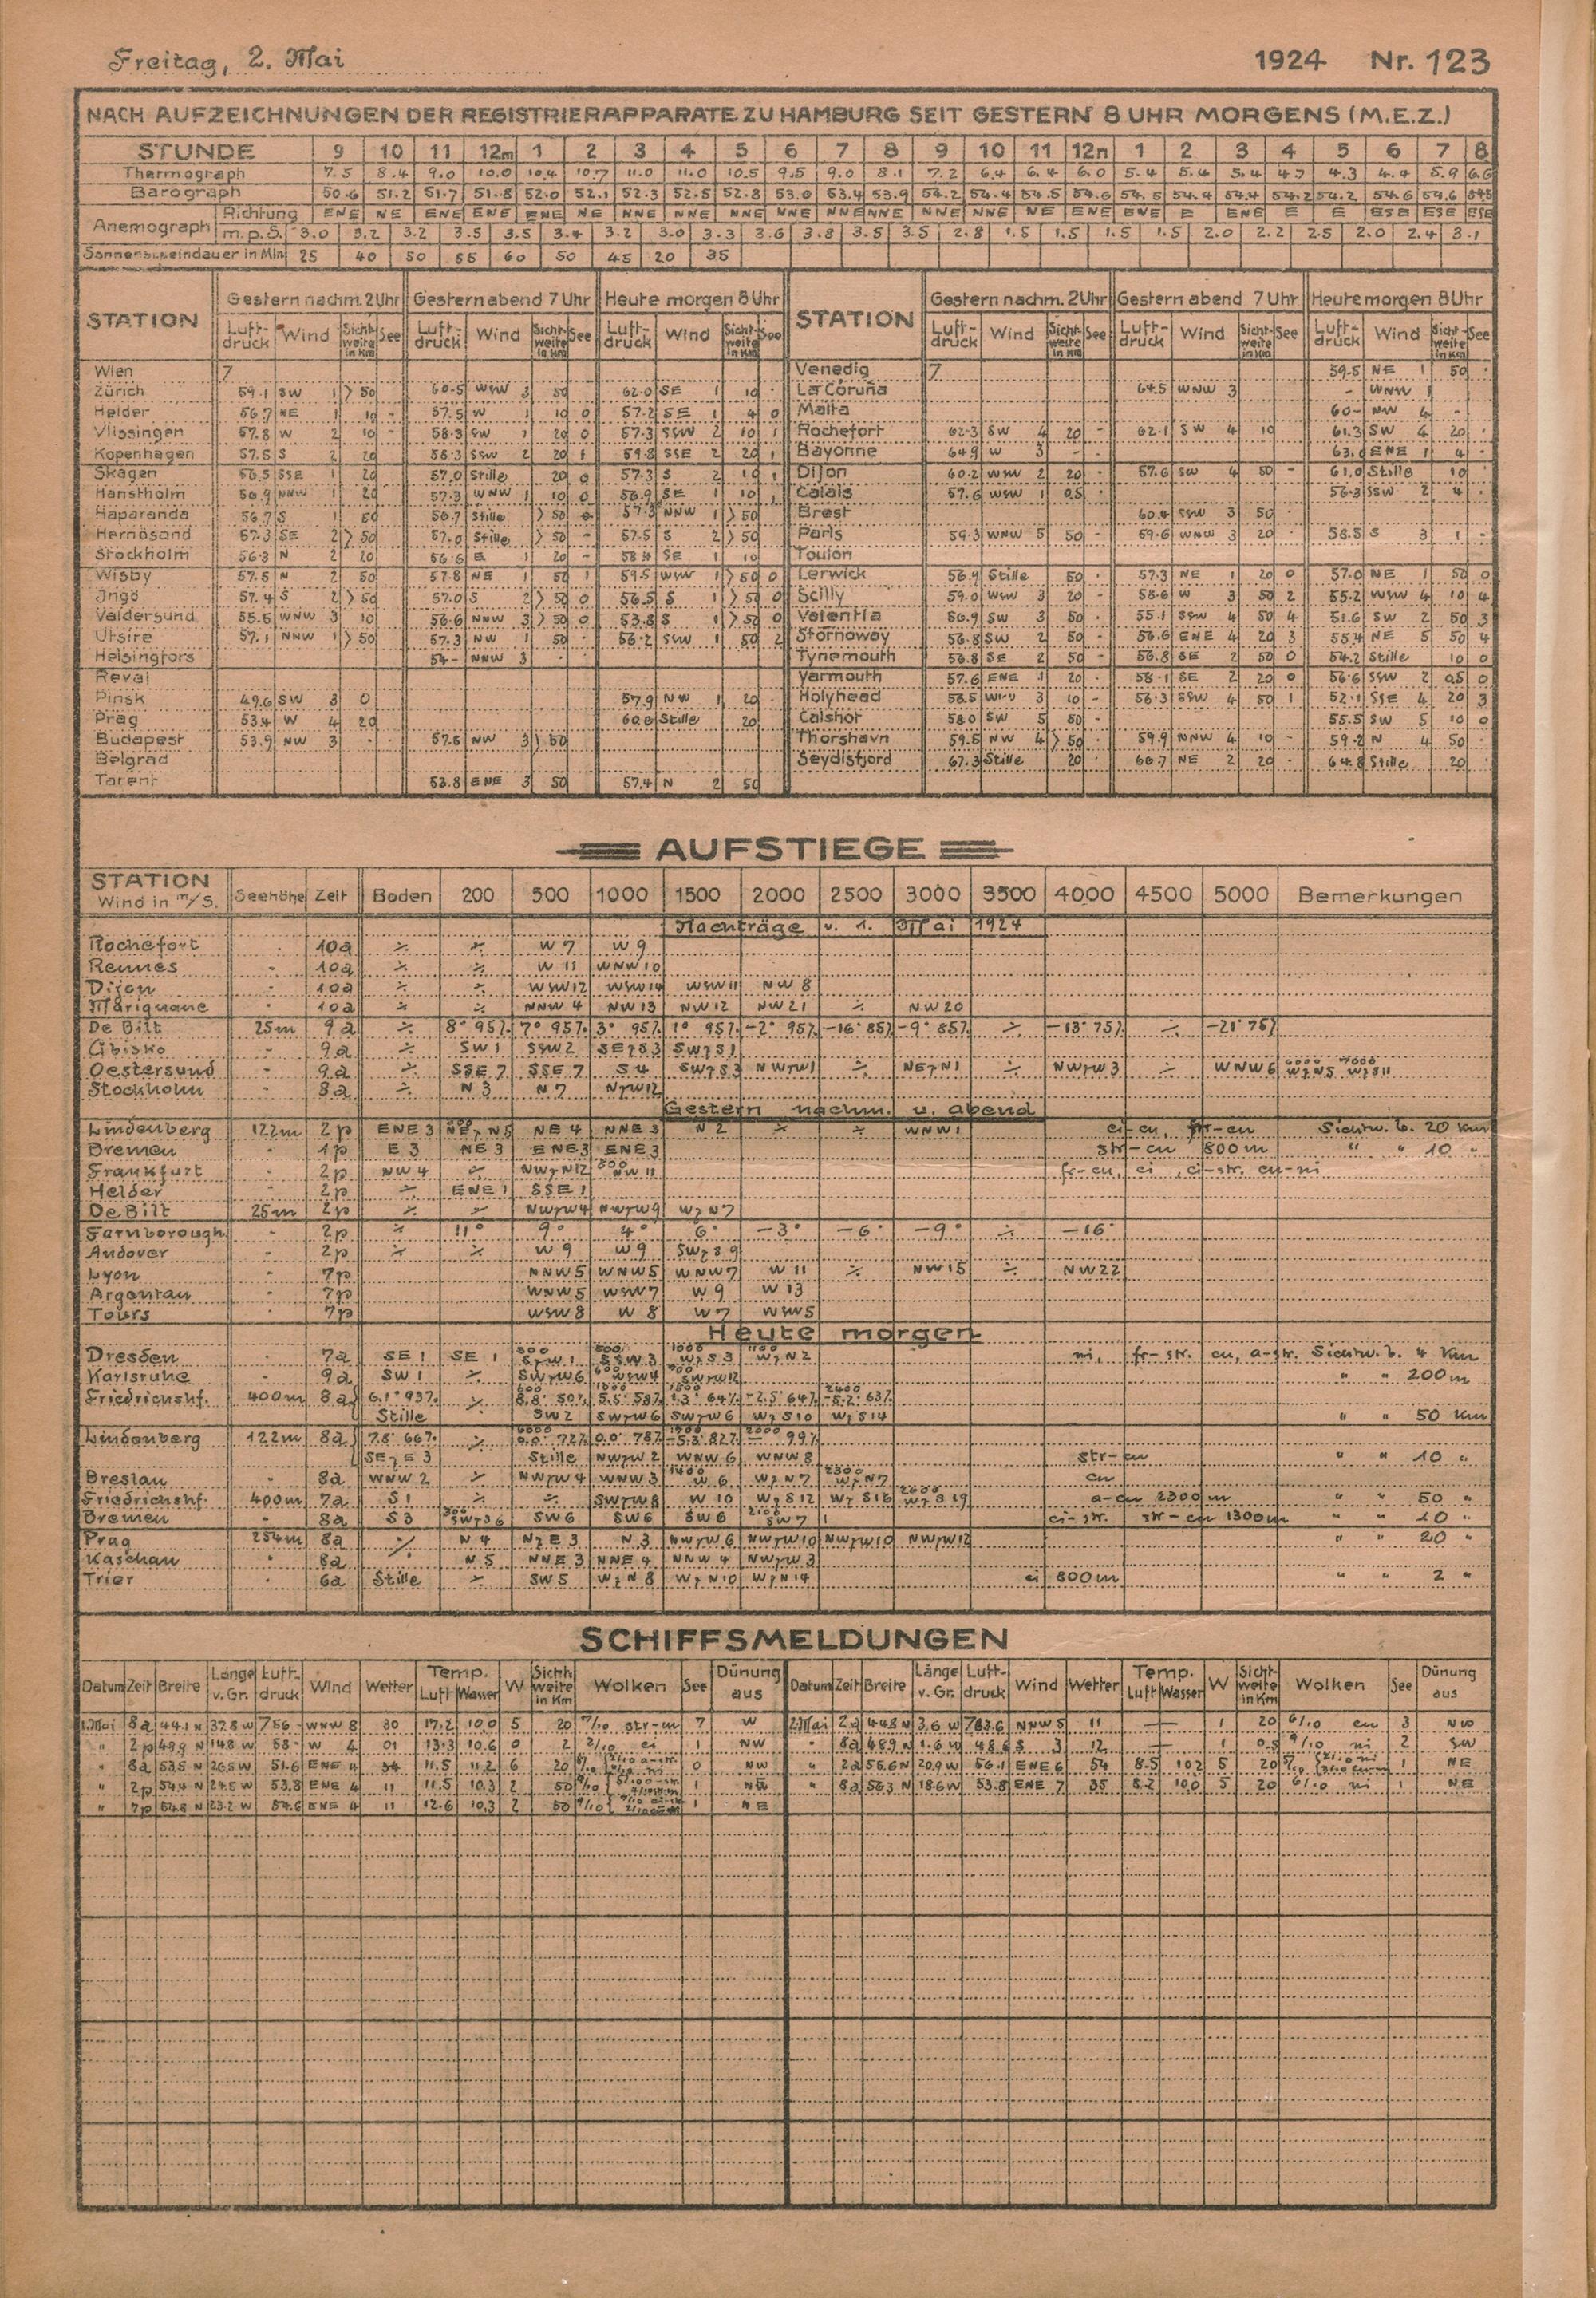 Freitag, 2. Mai 1924 Nr. 123
NACH AUFZEICHNUNGEN DER REGISTRIERAPPARATE ZU HAMBURG SEIT GESTERN 8 UHR MORGENS (M.E.Z.)
STUNDE 9 10 11 12m 1 2 3 4 5 6 7 8 9 10 11 12n 1 2 3 4 5 6 7 8
Thermograph 7.5 8.4 9.0 10.0 10.4 10.7 11.0 11.0 10.5 9.5 9.0 8.1 7.2 6.4 6.4 6.0 5.4 5.4 5.4 4.7 4.3 4.4 5.9 6.6
Barograph 50.6 51.2 51.7 51.8 52.0 52.1 52.3 52.5 52.8 53.0 53.4 53.9 54.2 54.4 54.5 54.6 54.5 54.4 54.4 54.2 54.2 54.6 54.6
Anemograph Richtung ENE NE ENE ENE ENE NE NNE NNE NNE NNE NNE NNE NNE NNE NE ENE ENE E ENE E E ESE ESE ESE
m.p.S. 3.0 3.2 3.2 3.5 3.5 3.4 3.2 3.0 3.3 3.6 3.8 3.5 3.5 2.8 1.5 1.5 1.5 1.5 2.0 2.2 2.5 2.0 2.4 3.1
Sonnenscheindauer in Min. 25 40 50 55 60 50 45 20 35
STATION Gestern nachm. 2 Uhr Gestern abend 7 Uhr Heute morgen 8 Uhr STATION Gestern nachm. 2 Uhr Gestern abend 7 Uhr Heute morgen 8 Uhr
Luft-druck Wind Sicht-weite in Km See Luft-druck Wind Sicht-weite in Km See Luft-druck Wind Sicht-weite in Km See Luft-druck Wind Sicht-weite in Km See Luft-druck Wind Sicht-weite in Km See Luft-druck Wind Sicht-weite in Km See
Wien 7 Venedig 7 59.5 NE 1 50
Zürich 59.1 SW 1 >50 60.5 WSW 3 50 62.0 SE 1 10 La Coruña 64.5 WNW 3 - WNW 1
Helder 56.7 NE 1 10 - 57.5 W 1 10 0 57.2 SE 1 4 0 Malta 60- NW 4 -
Vlissingen 57.8 W 2 10 - 58.3 SW 1 20 0 57.3 SSW 2 10 1 Rochefort 62.3 SW 4 20 - 62.1 SW 4 10 61.3 SW 4 20
Kopenhagen 57.5 S 2 20 58.3 SSW 2 20 1 59.8 SSE 2 20 1 Bayonne 64.9 W 3 - - 63.0 ENE 1 4 -
Skagen 56.5 SSE 1 20 57.0 Stille 20 0 57.3 S 2 10 1 Dijon 60.2 WSW 2 20 - 57.6 SW 4 50 - 61.0 Stille 10
Hanstholm 56.9 NNW 1 20 57.3 WNW 1 10 0 56.9 SE 1 10 1 Calais 57.6 WSW 1 0,5 56.3 SSW 2 4
Haparanda 56.7 S 1 50 56.7 Stille >50 57.3 NNW 1 >50 Brest 60.4 SSW 3 50
Hernösand 57.3 SE 2 >50 57.0 Stille >50 - 57.5 S 2 >50 Paris 59.3 WNW 5 50 - 59.6 WNW 3 20 58.5 S 3 1 -
Stockholm 56.3 N 2 20 56.6 E 1 20 - 58.4 SE 1 10 Toulon
Wisby 57.5 N 2 50 57.8 NE 1 50 1 59.5 WSW 1 >50 0 Lerwick 56.9 Stille 50 57.3 NE 1 20 0 57.0 NE 1 50 0
Ingö 57.4 S 2 >50 57.0 S 2 >50 0 56.5 S 1 >50 0 Scilly 59.0 WSW 3 20 - 58.6 W 3 50 2 55.2 WSW 4 10 4
Valdersund 55.5 WNW 3 10 56.6 NNW 3 >50 0 53.8 S 1 >50 0 Valentia 56.9 SW 3 50 55.1 SSW 4 50 4 51.6 SW 2 50 3
Utsire 57.1 NNW 1 >50 57.3 NW 1 50 56.2 SSW 1 50 2 Stornoway 56.8 SW 2 50 - 56.6 ENE 4 20 3 55.4 NE 5 50 4
Helsingfors 54- NNW 3 Tynemouth 56.8 SE 2 50 - 56.8 SE 2 50 0 54.2 Stille 10 0
Reval Yarmouth 57.6 ENE 1 20 - 58.1 SE 2 20 0 56.6 SSW 2 0,5 0
Pinsk 49.6 SW 3 0 57.9 NW 1 20 Holyhead 3 10 - 56.3 SSW 4 50 1 52.1 SSE 4 20 3
Prag 53.4 W 4 20 60.0 Stille 20 Calshot 58.0 SW 5 50 - 55.5 SW 5 10 0
Budapest 53.9 NW 3 57.5 NW 3 >50 Thorshavn 59.5 NW 4 >50 59.9 NNW 4 10 - 59.2 N 4 50
Belgrad Seydisfjord 67.3 Stille 20 66.7 NE 2 20 64.8 Stille 20
Tarent 53.8 ENE 3 50 57.4 N 2 50
AUFSTIEGE
STATION Wind in m/s. Seehöhe Zeit Boden 200 500 1000 1500 2000 2500 3000 3500 4000 4500 5000 Bemerkungen
Nachträge v. 1. Mai 1924
Rochefort 10a ·/. ·/. W 7 W 9
Rennes - 10a ·/. ·/. W 11 WNW 10
Dijon 10a ·/. ·/. WSW12 WSW14 WSW11 NW 8
Mariguane 10a ·/. ·/. NNW 4 NW 13 NW 12 NW 21 ·/. NW 20
De Bilt 25m 9a ·/. 8° 95% 7° 95% 3° 95% 1° 95% -2° 95% -16° 85% -9° 85% ·/. -13° 75% ·/. -21° 75%
Abisko - 9a ·/. SW 1 SSW 2 SEzS 3 SWzS 1
Oestersund - 9a ·/. SSE 7 SSE 7 S 4 SWzS 3 NWzW1 ·/. NEzN1 ·/. NWzW 3 ·/. WNW 6 6000 WzN5 7000 WzS11
Stockholm 8a ·/. N 3 N 7 NzW12
Gestern nachm. u. abend
Lindenberg 122m 2p ENE 3 NEzN5 NE 4 NNE 3 N 2 ·/. ·/. WNW 1 ci-cu, str-cu Sichtw. b. 20 Km
Bremen 1p E 3 NE 3 ENE 3 ENE 3 str-cu 800m " " 10 "
Frankfurt 2p NW 4 ·/. NWzN12 800 NW 11 fr-cu, ci, ci-str. cu-ni
Helder 2p ·/. ENE 1 SSE 1
De Bilt 25m 2p ·/. ·/. NWzW4 NWzW9 WzN7
Farnborough - 2p ·/. 11° 9° 4° 6° -3° -6° -9° ·/. -16°
Andover - 2p ·/. ·/. W 9 W 9 SWzS 9
Lyon - 7p NNW 5 WNW5 WNW7 W 11 ·/. NW 15 ·/. NW22
Argentan 7p WNW 5 WSW7 W 9 W 13
Tours - 7p WSW 8 W 8 W 7 WSW5
Heute morgen
Dresden 7a SE 1 SE 1 SSW 3 WzS 3 WzN 2 ni, fr-str. cu, a-str. Sichtw. b. 4 Km
Karlsruhe 9a SW 1 ·/. SWzW6 WSW4 SWzW12 " " 200m
Friedrichshf. 400m 8a 6.1° 93% ·/. 600 8.8° 50% 1000 5.5° 58% 1500 1.3° 64% -2.5° 64% 2400 -5.2° 63%
Stille SW 2 SWzW 6 SWzW 6 WzS10 WzS14 " " 50 Km
Lindenberg 122m 8a 7.8° 66% ·/. 72% 0.0° 78% -5.3° 82% 2000 — 99%
SEzE 3 Stille NWzW 2 WNW 6 WNW 8 str-cu " " 10 "
Breslau - 8a WNW 2 ·/. NWzW 4 WNW 3 1400 W 6 WzN7 2300 WzN7 cu
Friedrichshf. 400m 7a S 1 ·/. ·/. SWzW8 W 10 WzS12 WzS16 2600 WzS19 a-cu 2300 m " " 50 "
Bremen - 8a S 3 SWzS6 SW6 SW6 SW6 2100 SW 7 ci-str. str-cu 1300m " " 20 "
Prag 254m 8a ·/. N 4 NzE 3 N 3 NWzW 6 NWzW10 NWzW10 NWzW12 " " 20 "
Kaschau " 8a N 5 NNE 3 NNE 4 NNW 4 NWzW 3
Trier 6a Stille ·/. SW 5 WzN 8 WzN10 WzN14 ci 800m " " 2 "
SCHIFFSMELDUNGEN
Datum Zeit Breite Länge v. Gr. Luft-druck Wind Wetter Temp. Luft Wasser W Sicht-weite in Km Wolken See Dünung aus Datum Zeit Breite Länge v. Gr. Luft-druck Wind Wetter Temp. Luft Wasser W Sicht-weite in Km Wolken See Dünung aus
1.Mai 8a 44.1 N 37.8 W 756 - WNW 8 80 17.2 10.0 5 20 7/10 str-cu 7 W 2.Mai 2a 44.8 N 3.6 W 763.6 NNW 5 11 — 1 20 6/10 cu 3 NW
" 2p 49.9 N 14.8 W 58- W 4 01 13.3 10.6 0 2 2/10 ci 1 NW " 8a 48.9 N 1.6 W 48.6 S 3 12 — 1 0.5 9/10 ni 2 SW
" 8a 53.5 N 26.5 W 51.6 ENE 4 34 11.5 11.2 6 20 0 NW " 2a 55.6 N 20.9 W 56.1 ENE 6 54 8.5 10.2 5 20 1 NE
" 2p 54.4 N 24.5 W 53.8 ENE 4 11 11.5 10.3 2 50 1 NE " 8a 56.3 N 18.6 W 53.8 ENE 7 35 8.2 10.0 5 20 6/10 ni 1 NE
" 7p 54.8 N 23.2 W 54.6 ENE 4 11 12.6 10.3 2 50 9/10 1 NE